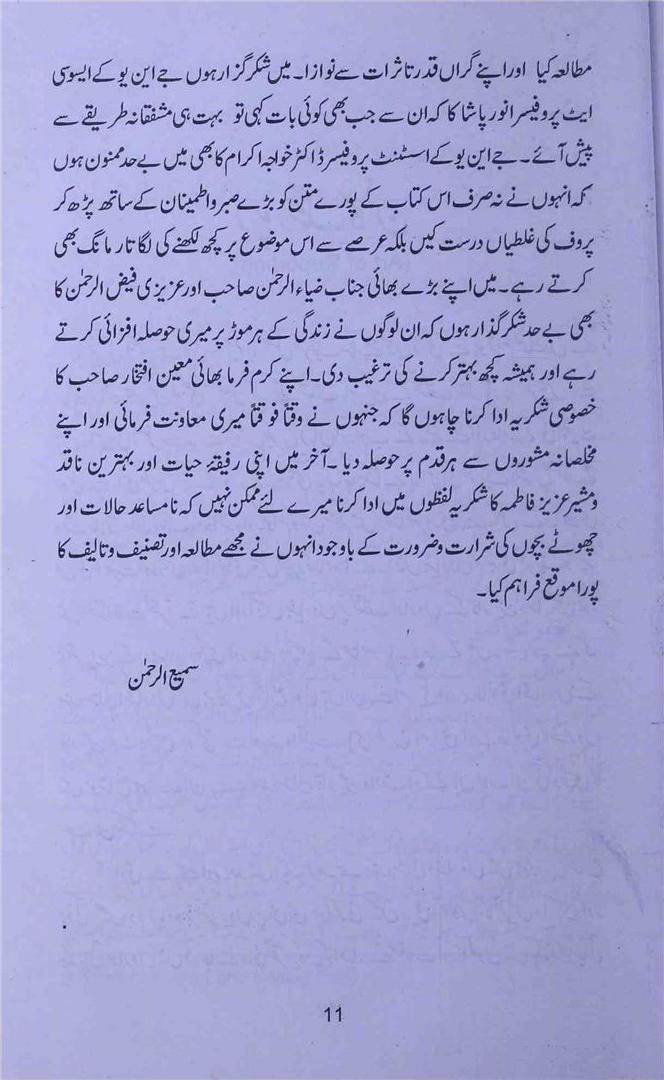 مطالعہ کیا اور اپنے گراں قدر تاثرات سے نوازا۔ میں شکر گزار ہوں جے این یو کے ایسوسی
ایٹ پروفیسر انور پاشا کا کہ ان سے جب بھی کوئی بات کہی تو بہت ہی مشفقانہ طریقے سے
پیش آئے۔ جے این یو کے اسسٹنٹ پروفیسر ڈاکٹر خواجہ اکرام کا بھی میں بے حد ممنون ہوں
کہ انہوں نے نہ صرف اس کتاب کے پورے متن کو بڑے صبر و اطمینان کے ساتھ پڑھ کر
پروف کی غلطیاں درست کیں بلکہ عرصے سے اس موضوع پر کچھ لکھنے کی لگاتار مانگ بھی
کرتے رہے۔ میں اپنے بڑے بھائی جناب ضیاء الرحمٰن صاحب اور عزیزی فیض الرحمٰن کا
بھی بے حد شکر گذار ہوں کہ ان لوگوں نے زندگی کے ہر موڑ پر میری حوصلہ افزائی کرتے
رہے اور ہمیشہ کچھ بہتر کرنے کی ترغیب دی۔ اپنے کرم فرما بھائی معین افتخار صاحب کا
خصوصی شکریہ ادا کرنا چاہوں گا کہ جنہوں نے وقتاً فوقتاً میری معاونت فرمائی اور اپنے
مخلصانہ مشوروں سے ہر قدم پر حوصلہ دیا ۔ آخر میں اپنی رفیقۂ حیات اور بہترین ناقد
و مشیر عزیز فاطمہ کا شکریہ لفظوں میں ادا کرنا میرے لئے ممکن نہیں کہ نامساعد حالات اور
چھوٹے بچوں کی شرارت و ضرورت کے باوجود انہوں نے مجھے مطالعہ اور تصنیف و تالیف کا
پورا موقع فراہم کیا۔
سمیع الرحمٰن
11